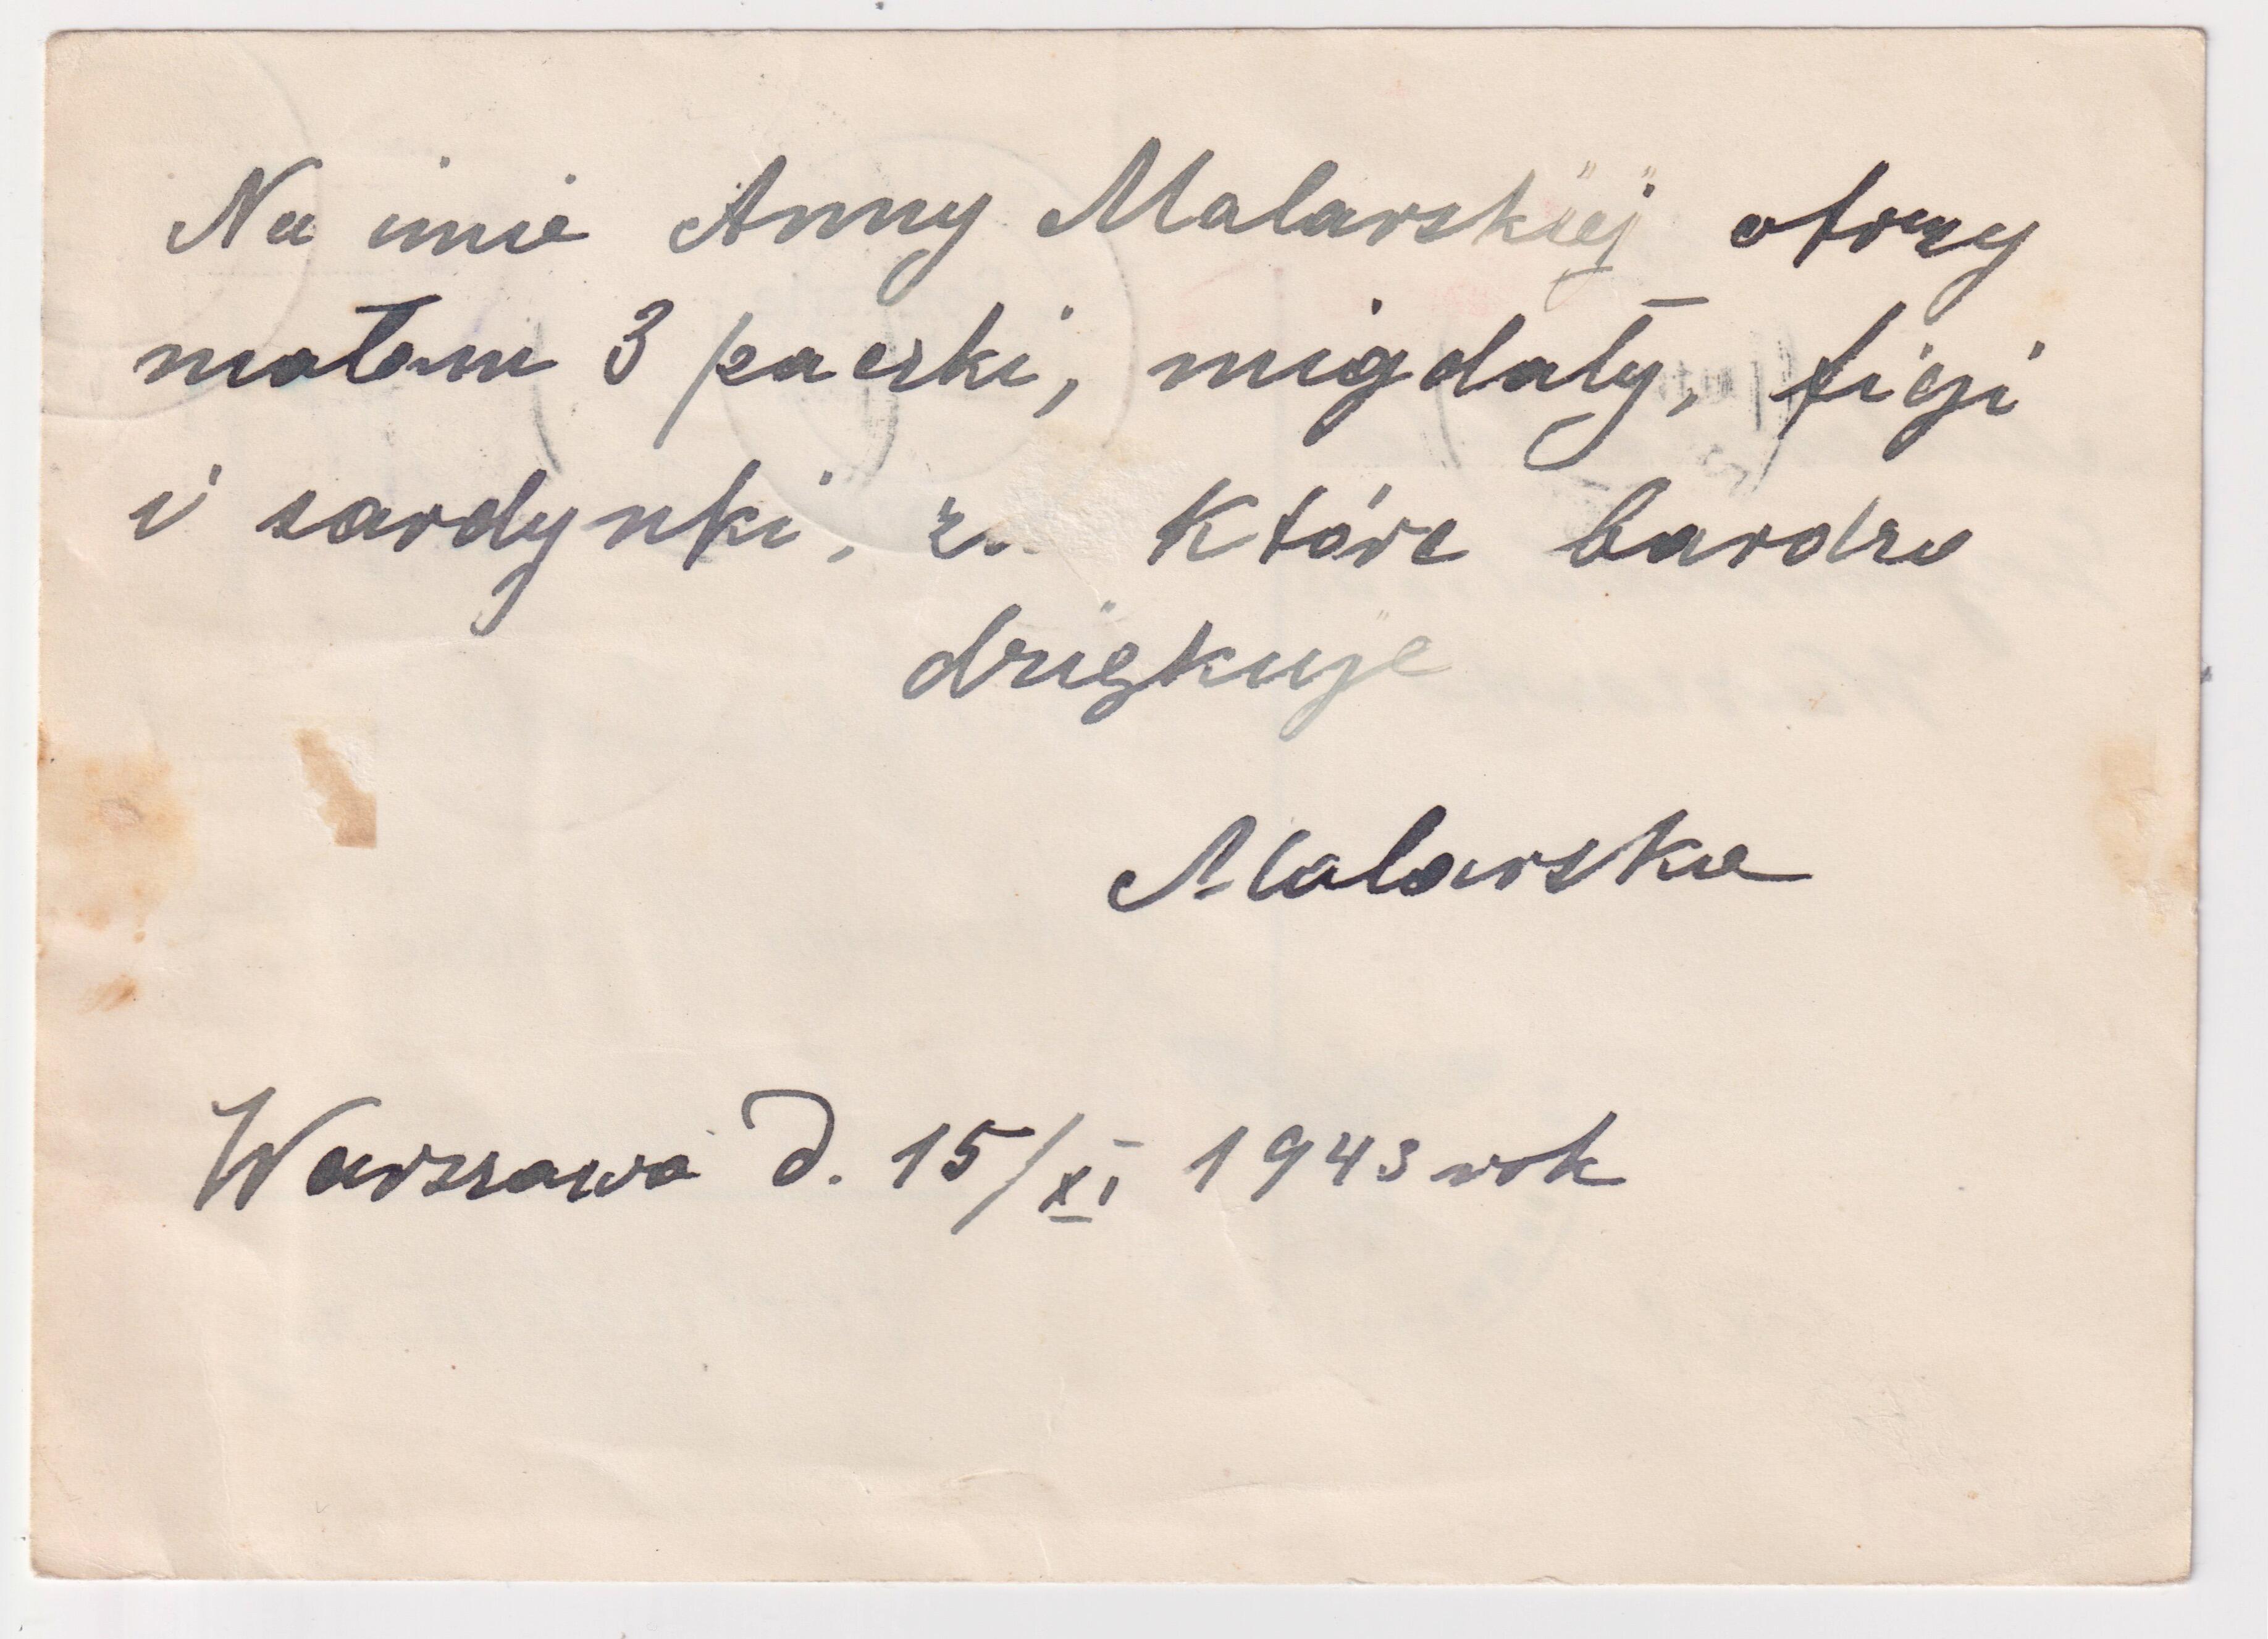 Na imie Anny Malarskiej otrzy
małam 3 paczki, migdały, figi
i sardynki, z. które bardzo
dziękuje
Malarska
Warszawa d. 15/XI 1943 rok